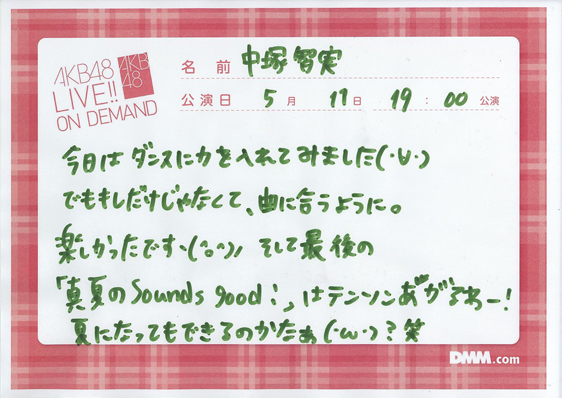 AKB48
LIVE!!
ON DEMAND
AKB
48
名前 中塚智実
公演日 5月 17日 19:00 公演
今日はダンスに力を入れてみました(・∀・)
でもキレだけじゃなくて、曲に合うように。
楽しかったですヽ(^o^)ノ そして最後の
「真夏のSounds good!」はテンションあがるわー!
夏になってもできるのかなぁ(・ω・)?笑
DMM.com